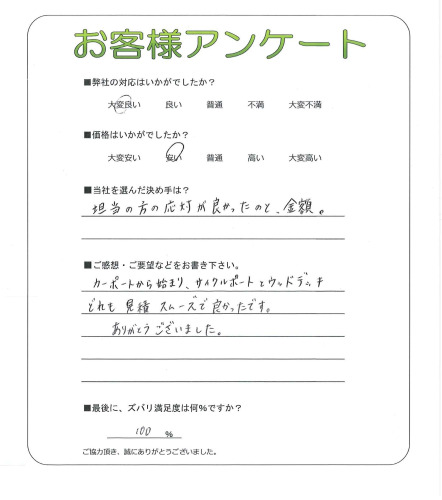 お客様アンケート
■弊社の対応はいかがでしたか?
大変良い 良い 普通 不満 大変不満
■価格はいかがでしたか?
大変安い 安い 普通 高い 大変高い
■当社を選んだ決め手は?
担当の方の応対が良かったのと、金額。
■ご感想・ご要望などをお書き下さい。
カーポートから始まり、サイクルポートとウッドデッキ
どれも見積スムーズで良かったです。
ありがとうございました。
■最後に、ズバリ満足度は何%ですか?
100 %
ご協力頂き、誠にありがとうございました。